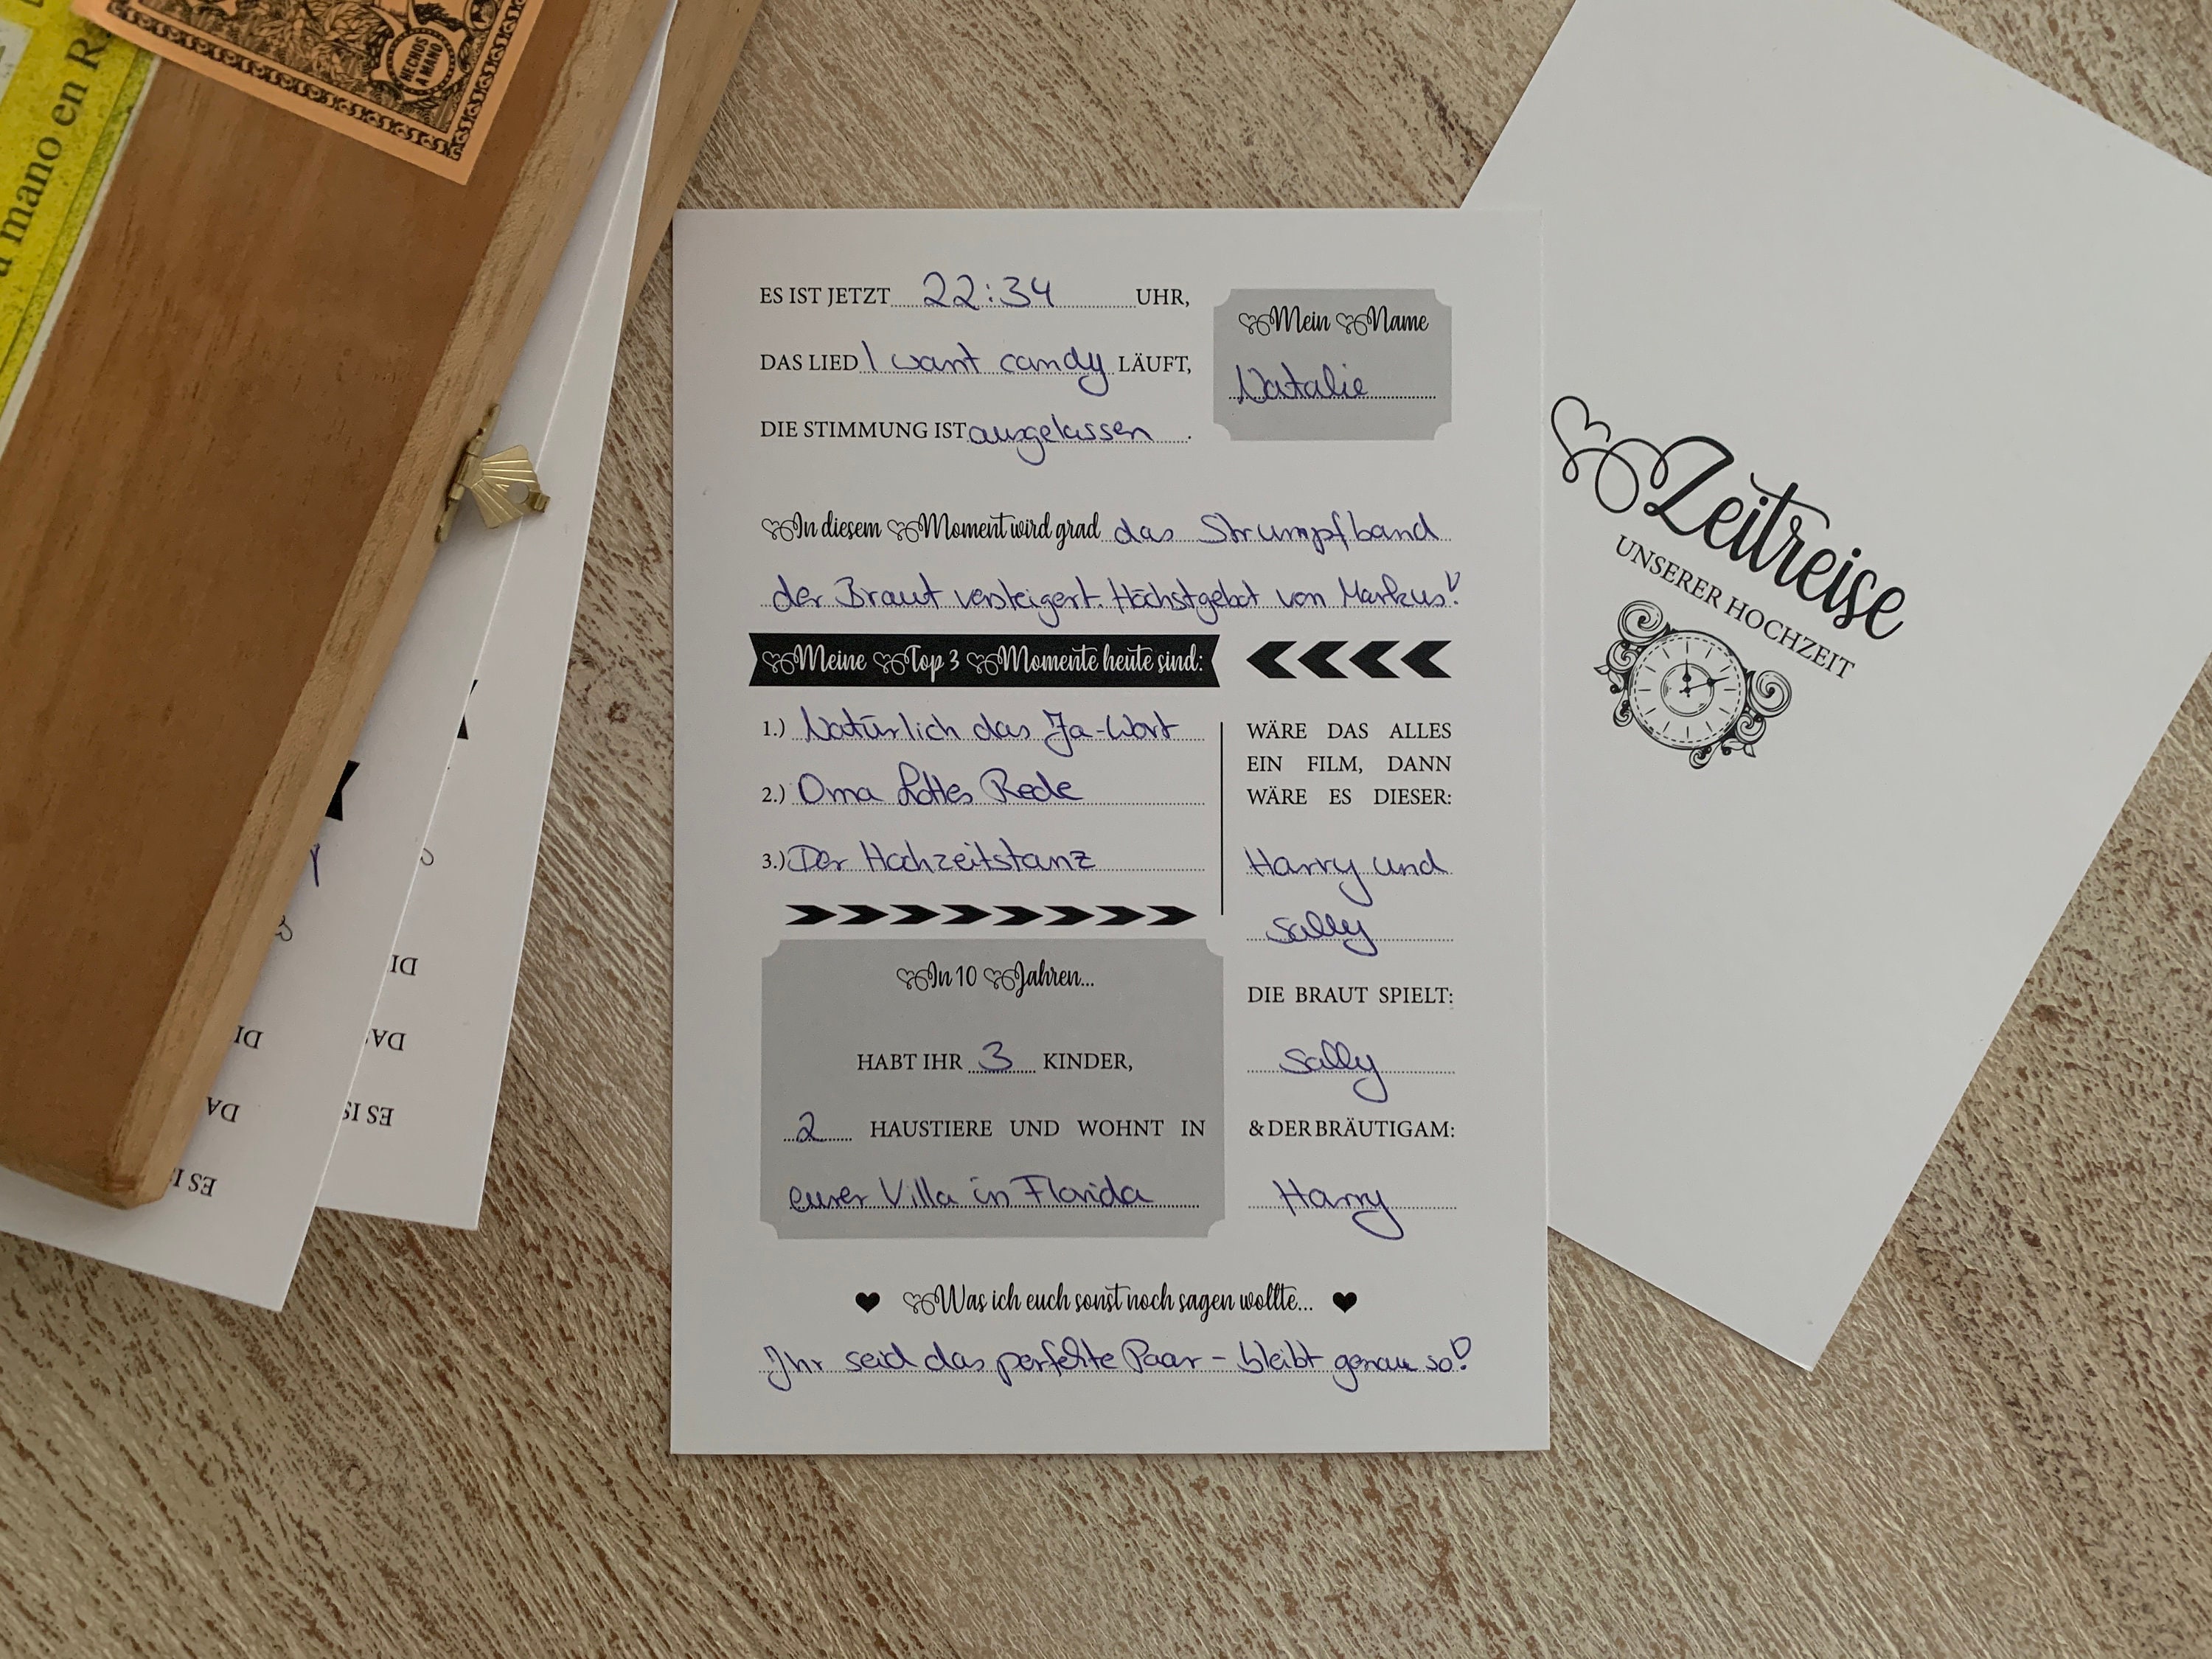 a mano en R
HECHOS
A MANO
ES IST JETZT 22:34 UHR,
DAS LIED I want candy LÄUFT,
DIE STIMMUNG IST ausgelassen.
Mein Name
Natalie
In diesem Moment wird grad das Strumpfband
der Braut versteigert. Höchstgebot von Markus!
Meine Top 3 Momente heute sind:
1.) Natürlich das Ja-Wort
2.) Oma Lottes Rede
3.) Der Hochzeitstanz
WÄRE DAS ALLES
EIN FILM, DANN
WÄRE ES DIESER:
Harry und
Sally
DIE BRAUT SPIELT:
Sally
& DER BRÄUTIGAM:
Harry
In 10 Jahren...
HABT IHR 3 KINDER,
2 HAUSTIERE UND WOHNT IN
eurer Villa in Florida
Was ich euch sonst noch sagen wollte...
Ihr seid das perfekte Paar - bleibt genau so!
Zeitreise
UNSERER HOCHZEIT
ES IS
DA
DI
ES IS
DAS
DI